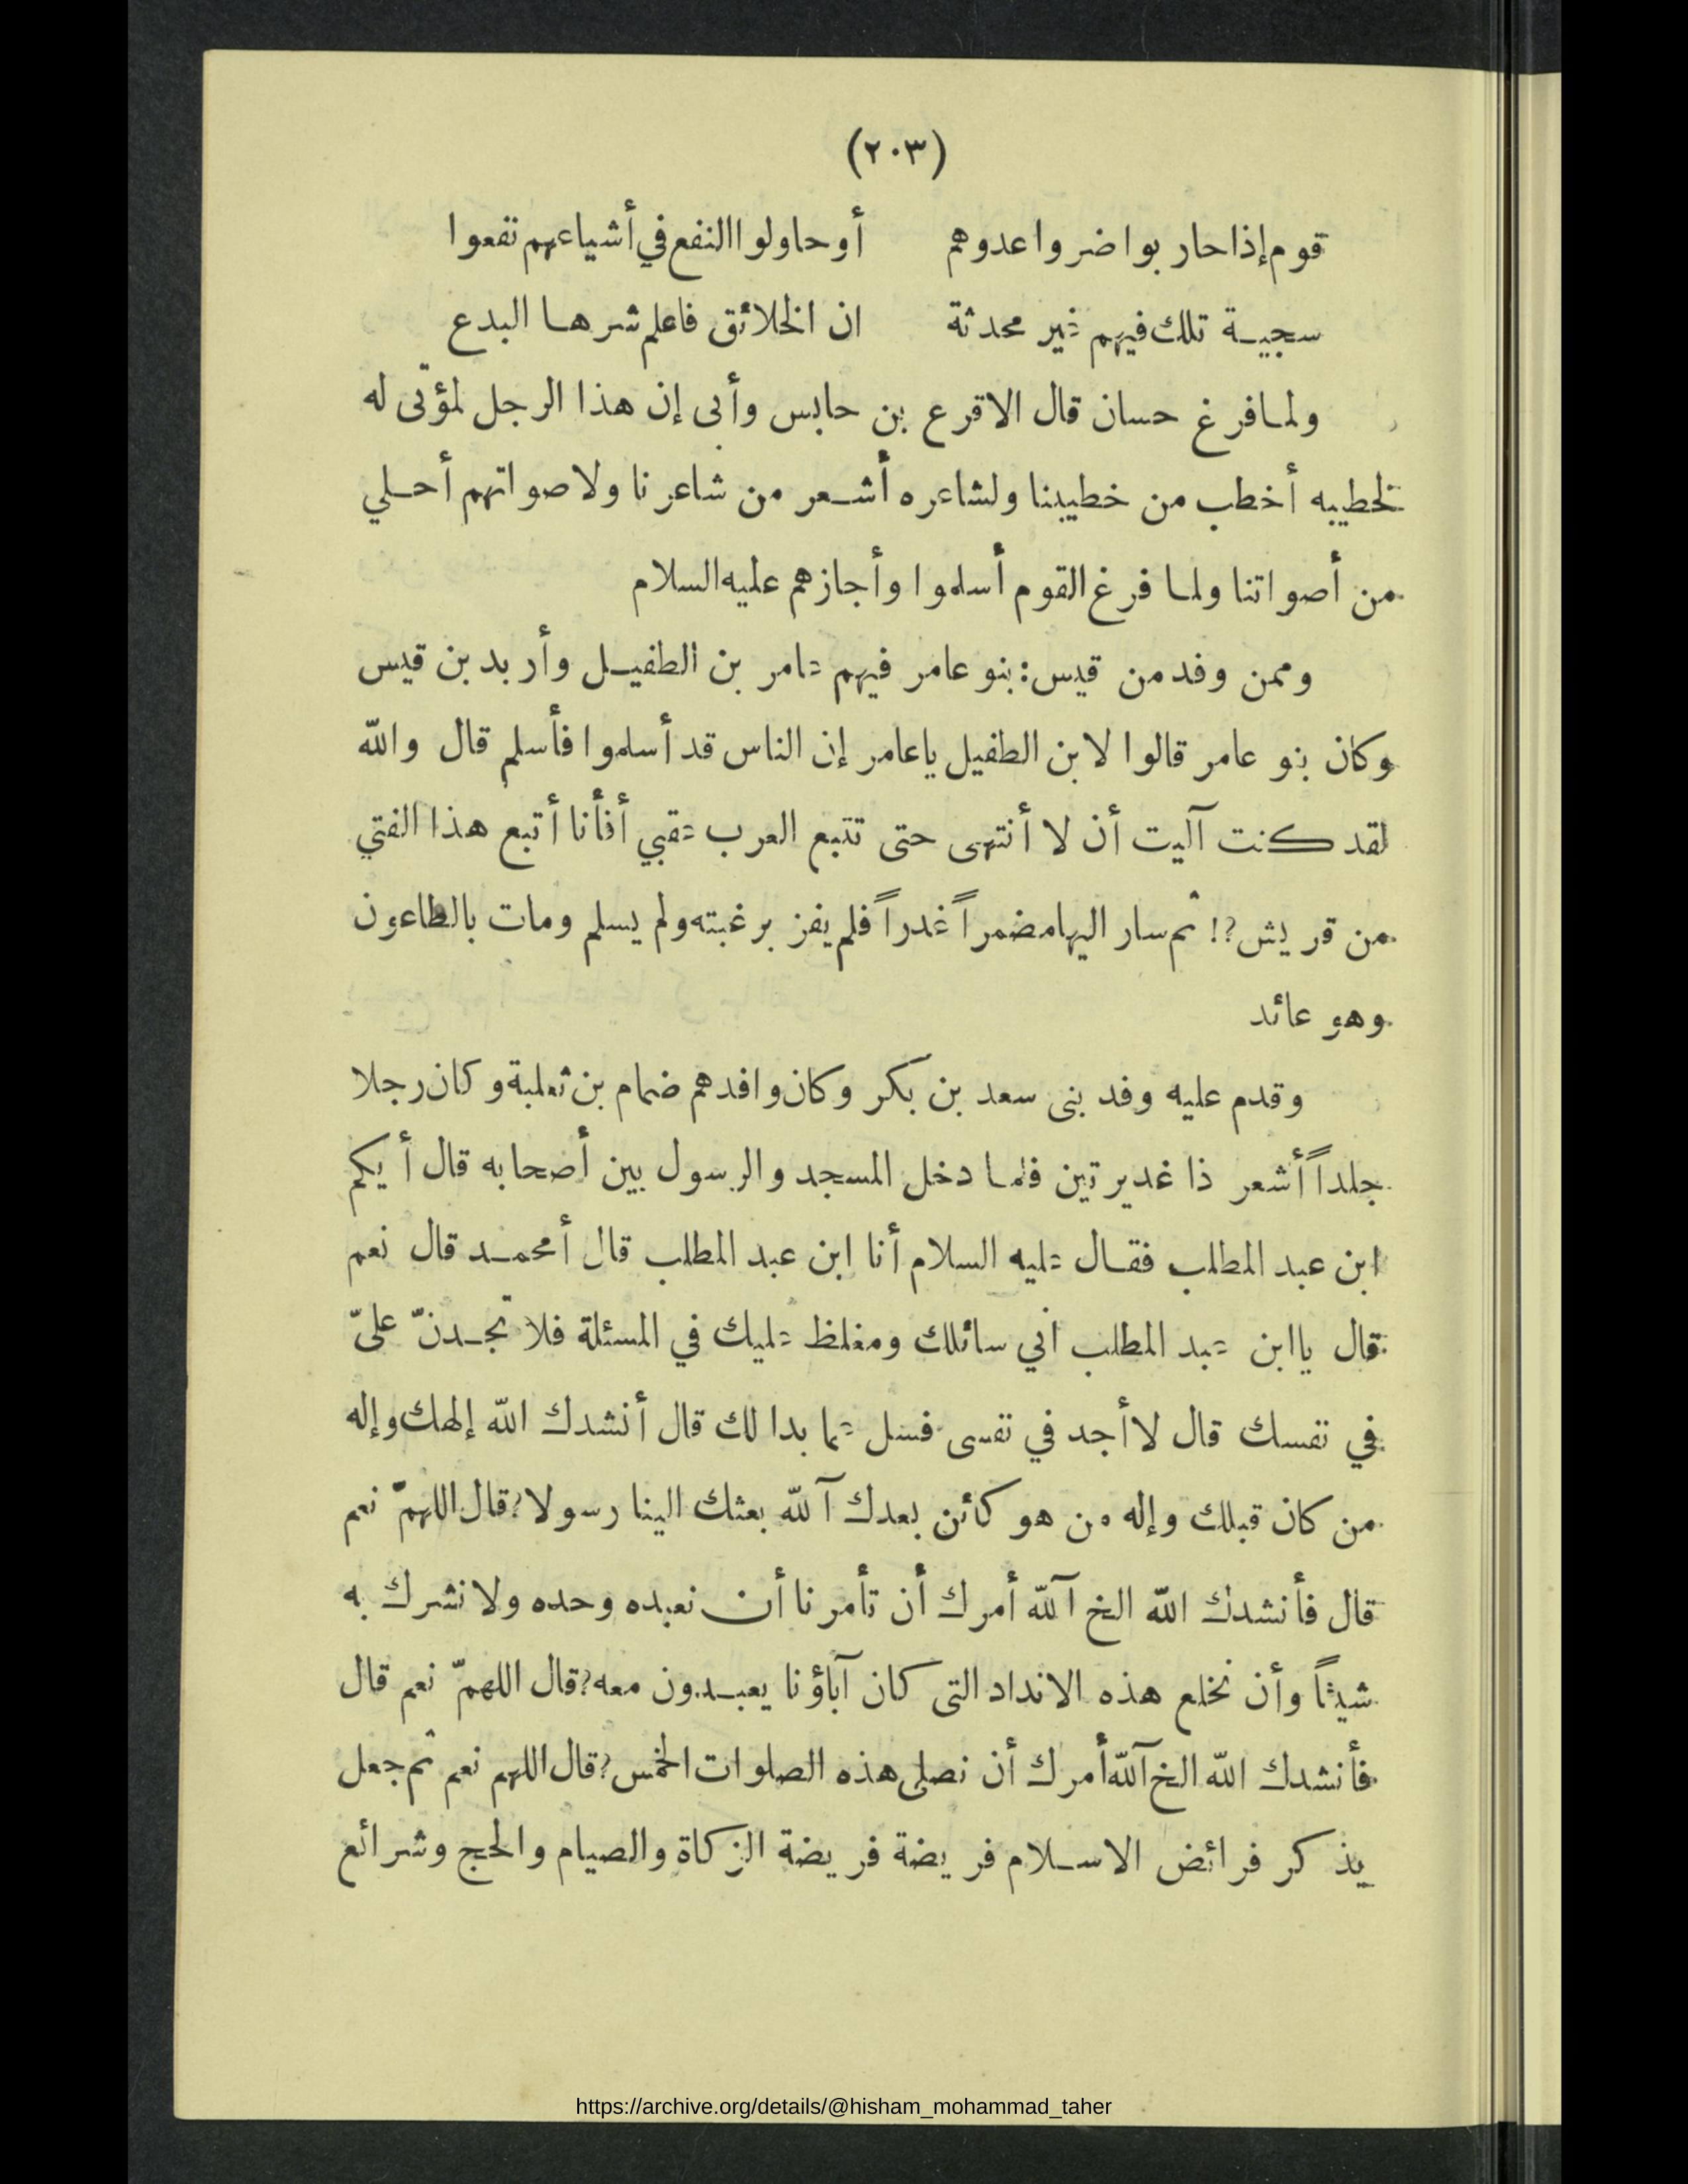 (٢٠٣)
قوم إذا حاربوا ضروا عدوهم أو حاولوا النفع في أشياعهم نفعوا
سجية تلك فيهم غير محدثة ان الخلائق فاعلم شرها البدع
ولما فرغ حسان قال الاقرع بن حابس وأبى إن هذا الرجل لمؤتى له
لخطيبه أخطب من خطيبنا ولشاعره أشعر من شاعرنا ولاصواتهم أحلي
من أصواتنا ولما فرغ القوم أسلموا وأجازهم عليه السلام
وممن وفد من قيس: بنو عامر فيهم عامر بن الطفيل وأربد بن قيس
وكان بنو عامر قالوا لابن الطفيل ياعامر إن الناس قد أسلموا فأسلم قال والله
لقد كنت آليت أن لا أنتهى حتى تتبع العرب عقبي أفأنا أتبع هذا الفتي
من قريش?! ثم سار اليها مضمراً غدراً فلم يفز برغبته ولم يسلم ومات بالطاعون
وهو عائد
وقدم عليه وفد بنى سعد بن بكر وكان وافدهم ضمام بن ثعلبة وكان رجلا
جلداً أشعر ذا غديرتين فلما دخل المسجد والرسول بين أصحابه قال أيكم
ابن عبد المطلب فقال عليه السلام أنا ابن عبد المطلب قال أمحمد قال نعم
قال ياابن عبد المطلب اني سائلك ومغلظ عليك في المسئلة فلا تجدنّ علىّ
في نفسك قال لا أجد في نفسى فسل عما بدا لك قال أنشدك الله إلهك وإله
من كان قبلك وإله من هو كائن بعدك آلله بعثك الينا رسولا? قال اللهمّ نعم
قال فأنشدك الله الخ آلله أمرك أن تأمرنا أن نعبده وحده ولا نشرك به
شيئاً وأن نخلع هذه الانداد التى كان آباؤنا يعبدون معه? قال اللهمّ نعم قال
فأنشدك الله الخ آلله أمرك أن نصلى هذه الصلوات الخمس? قال اللهم نعم ثم جعل
يذكر فرائض الاسلام فريضة فريضة الزكاة والصيام والحج وشرائع
https://archive.org/details/@hisham_mohammad_taher